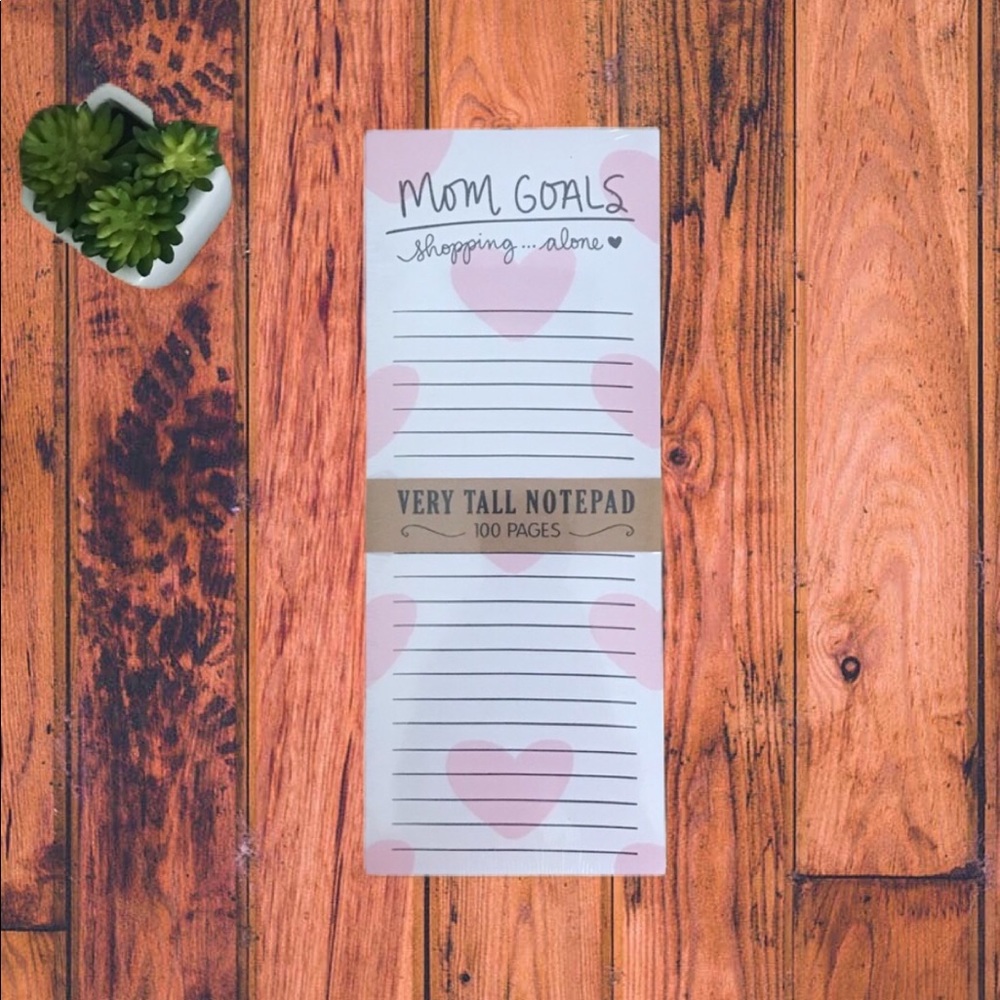 MOM GOALS
shopping... alone ♥
VERY TALL NOTEPAD
100 PAGES